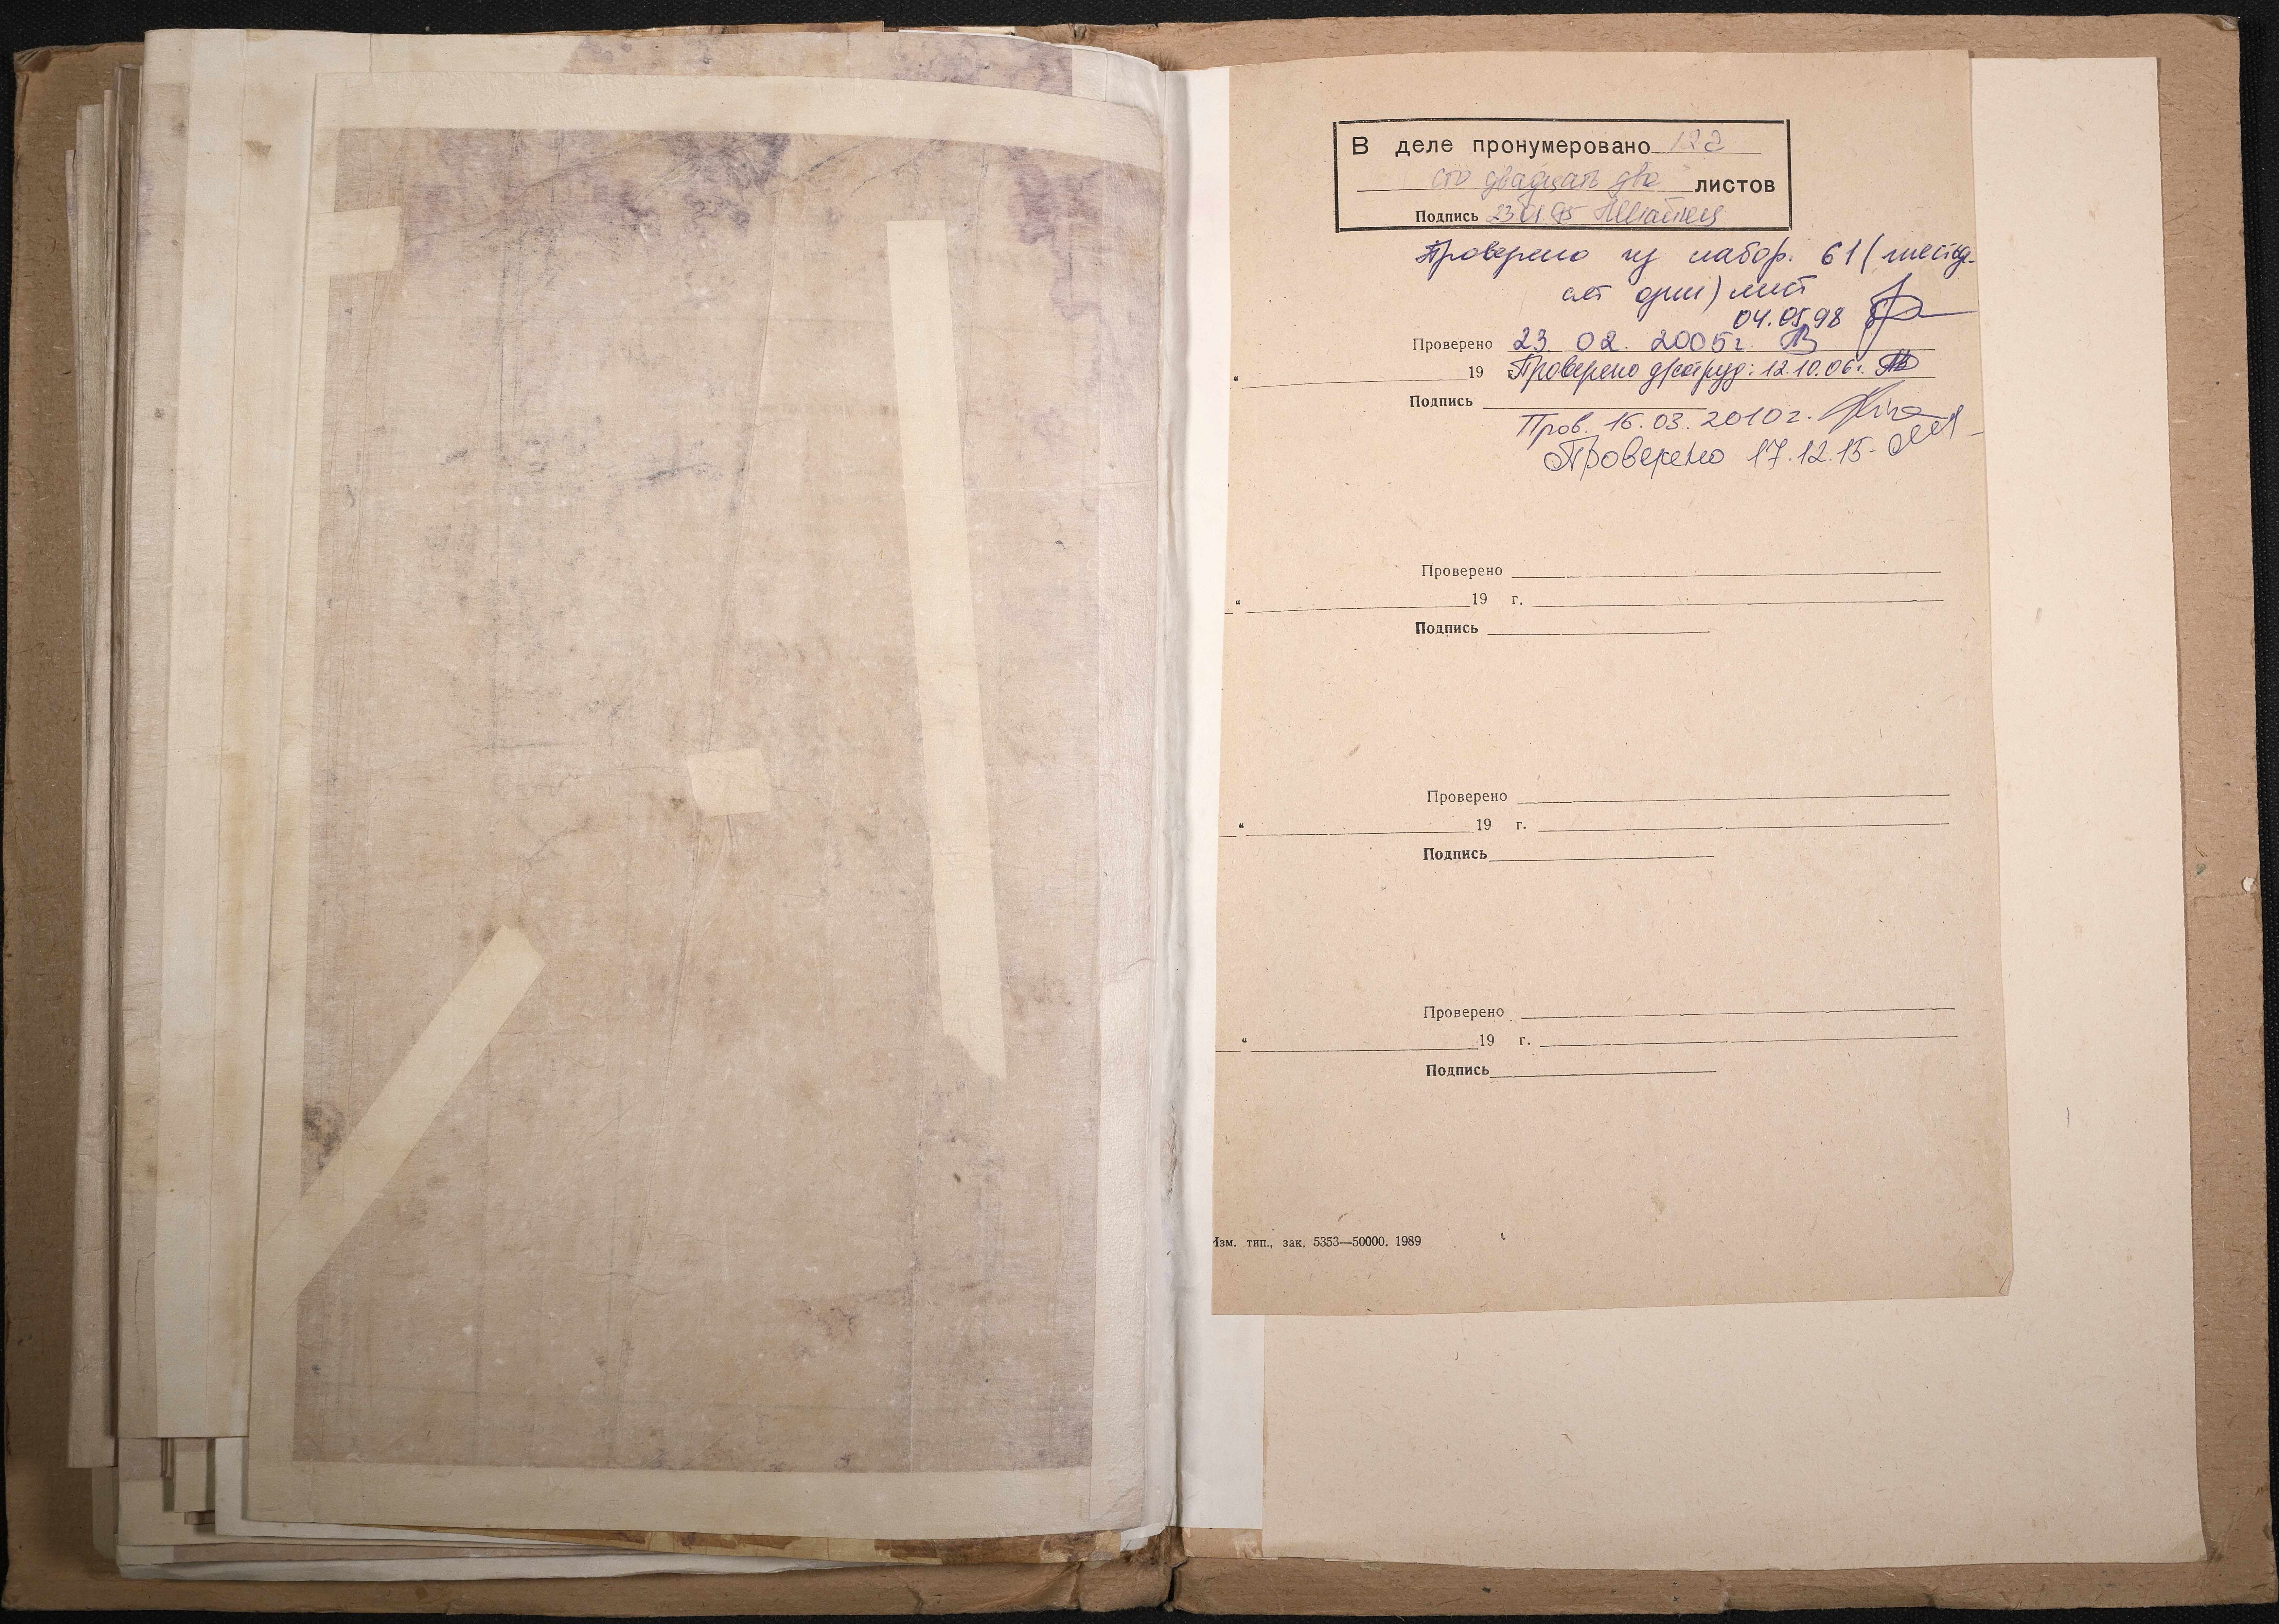 В деле пронумеровано 122
сто двадцать два листов
Подпись 23 01 95
Проверено из набор. 61 (шестьд-
сят один) лист
04.05.98
Проверено 23. 02. 2005г.
19 г. Проверено : 12.10.06г.
Подпись
Пров. 16.03.2010г.
Проверено 17.12.15.
Проверено
" 19 г.
Подпись
Проверено
" 19 г.
Подпись
Проверено
" 19 г.
Подпись
Изм. тип., зак. 5353—50000. 1989